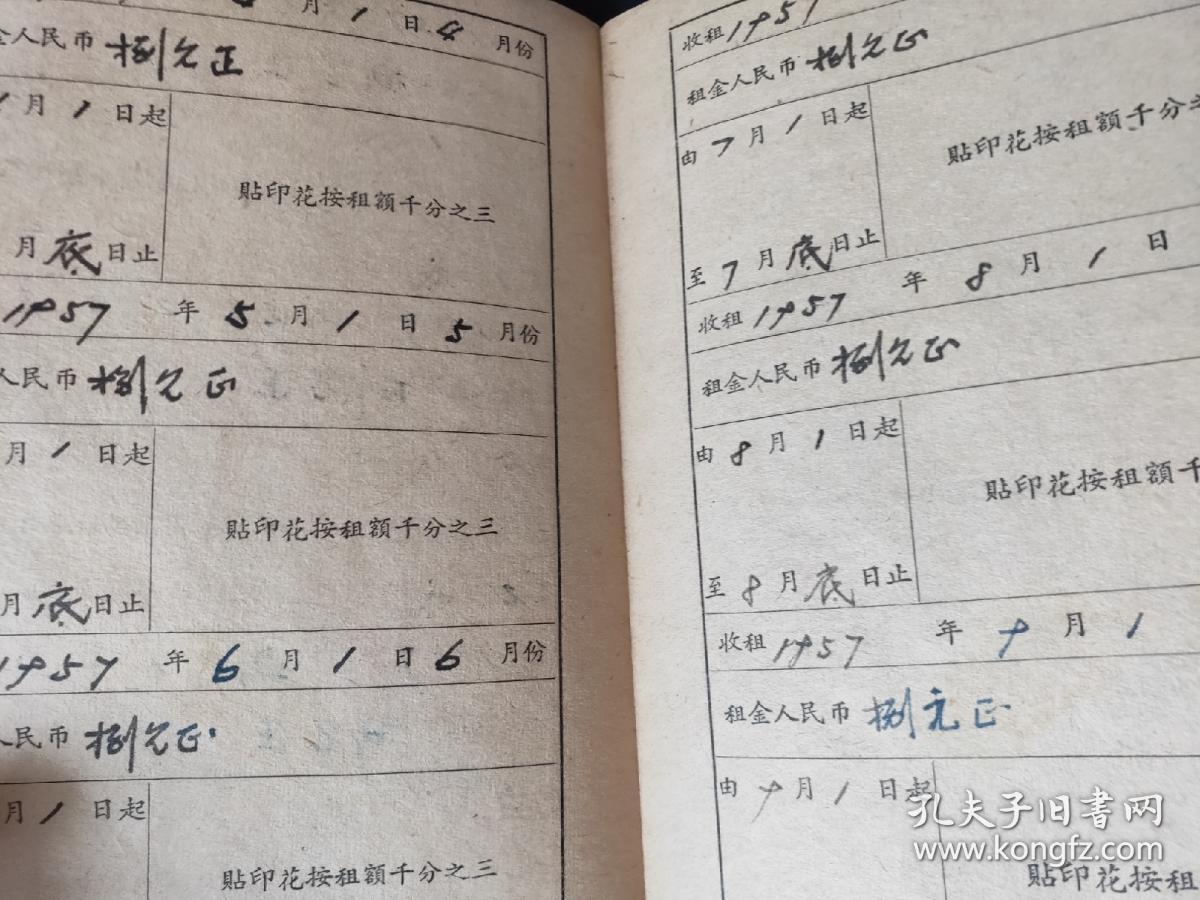 月1日4月份
金人民币捌元正
月1日起
貼印花按租額千分之三
月底日止
1957年5月1日5月份
人民币捌元正
月1日起
貼印花按租額千分之三
月底日止
1957年6月1日6月份
人民币捌元正
月1日起
貼印花按租額千分之三
收租1957
租金人民币捌元正
由7月1日起
貼印花按租額千分之
至7月底日止
收租1957年8月1日
租金人民币捌元正
由8月1日起
貼印花按租額千
至8月底日止
收租1957年9月1
租金人民币捌元正
由9月1日起
貼印花按租
孔夫子旧书网
www.kongfz.com